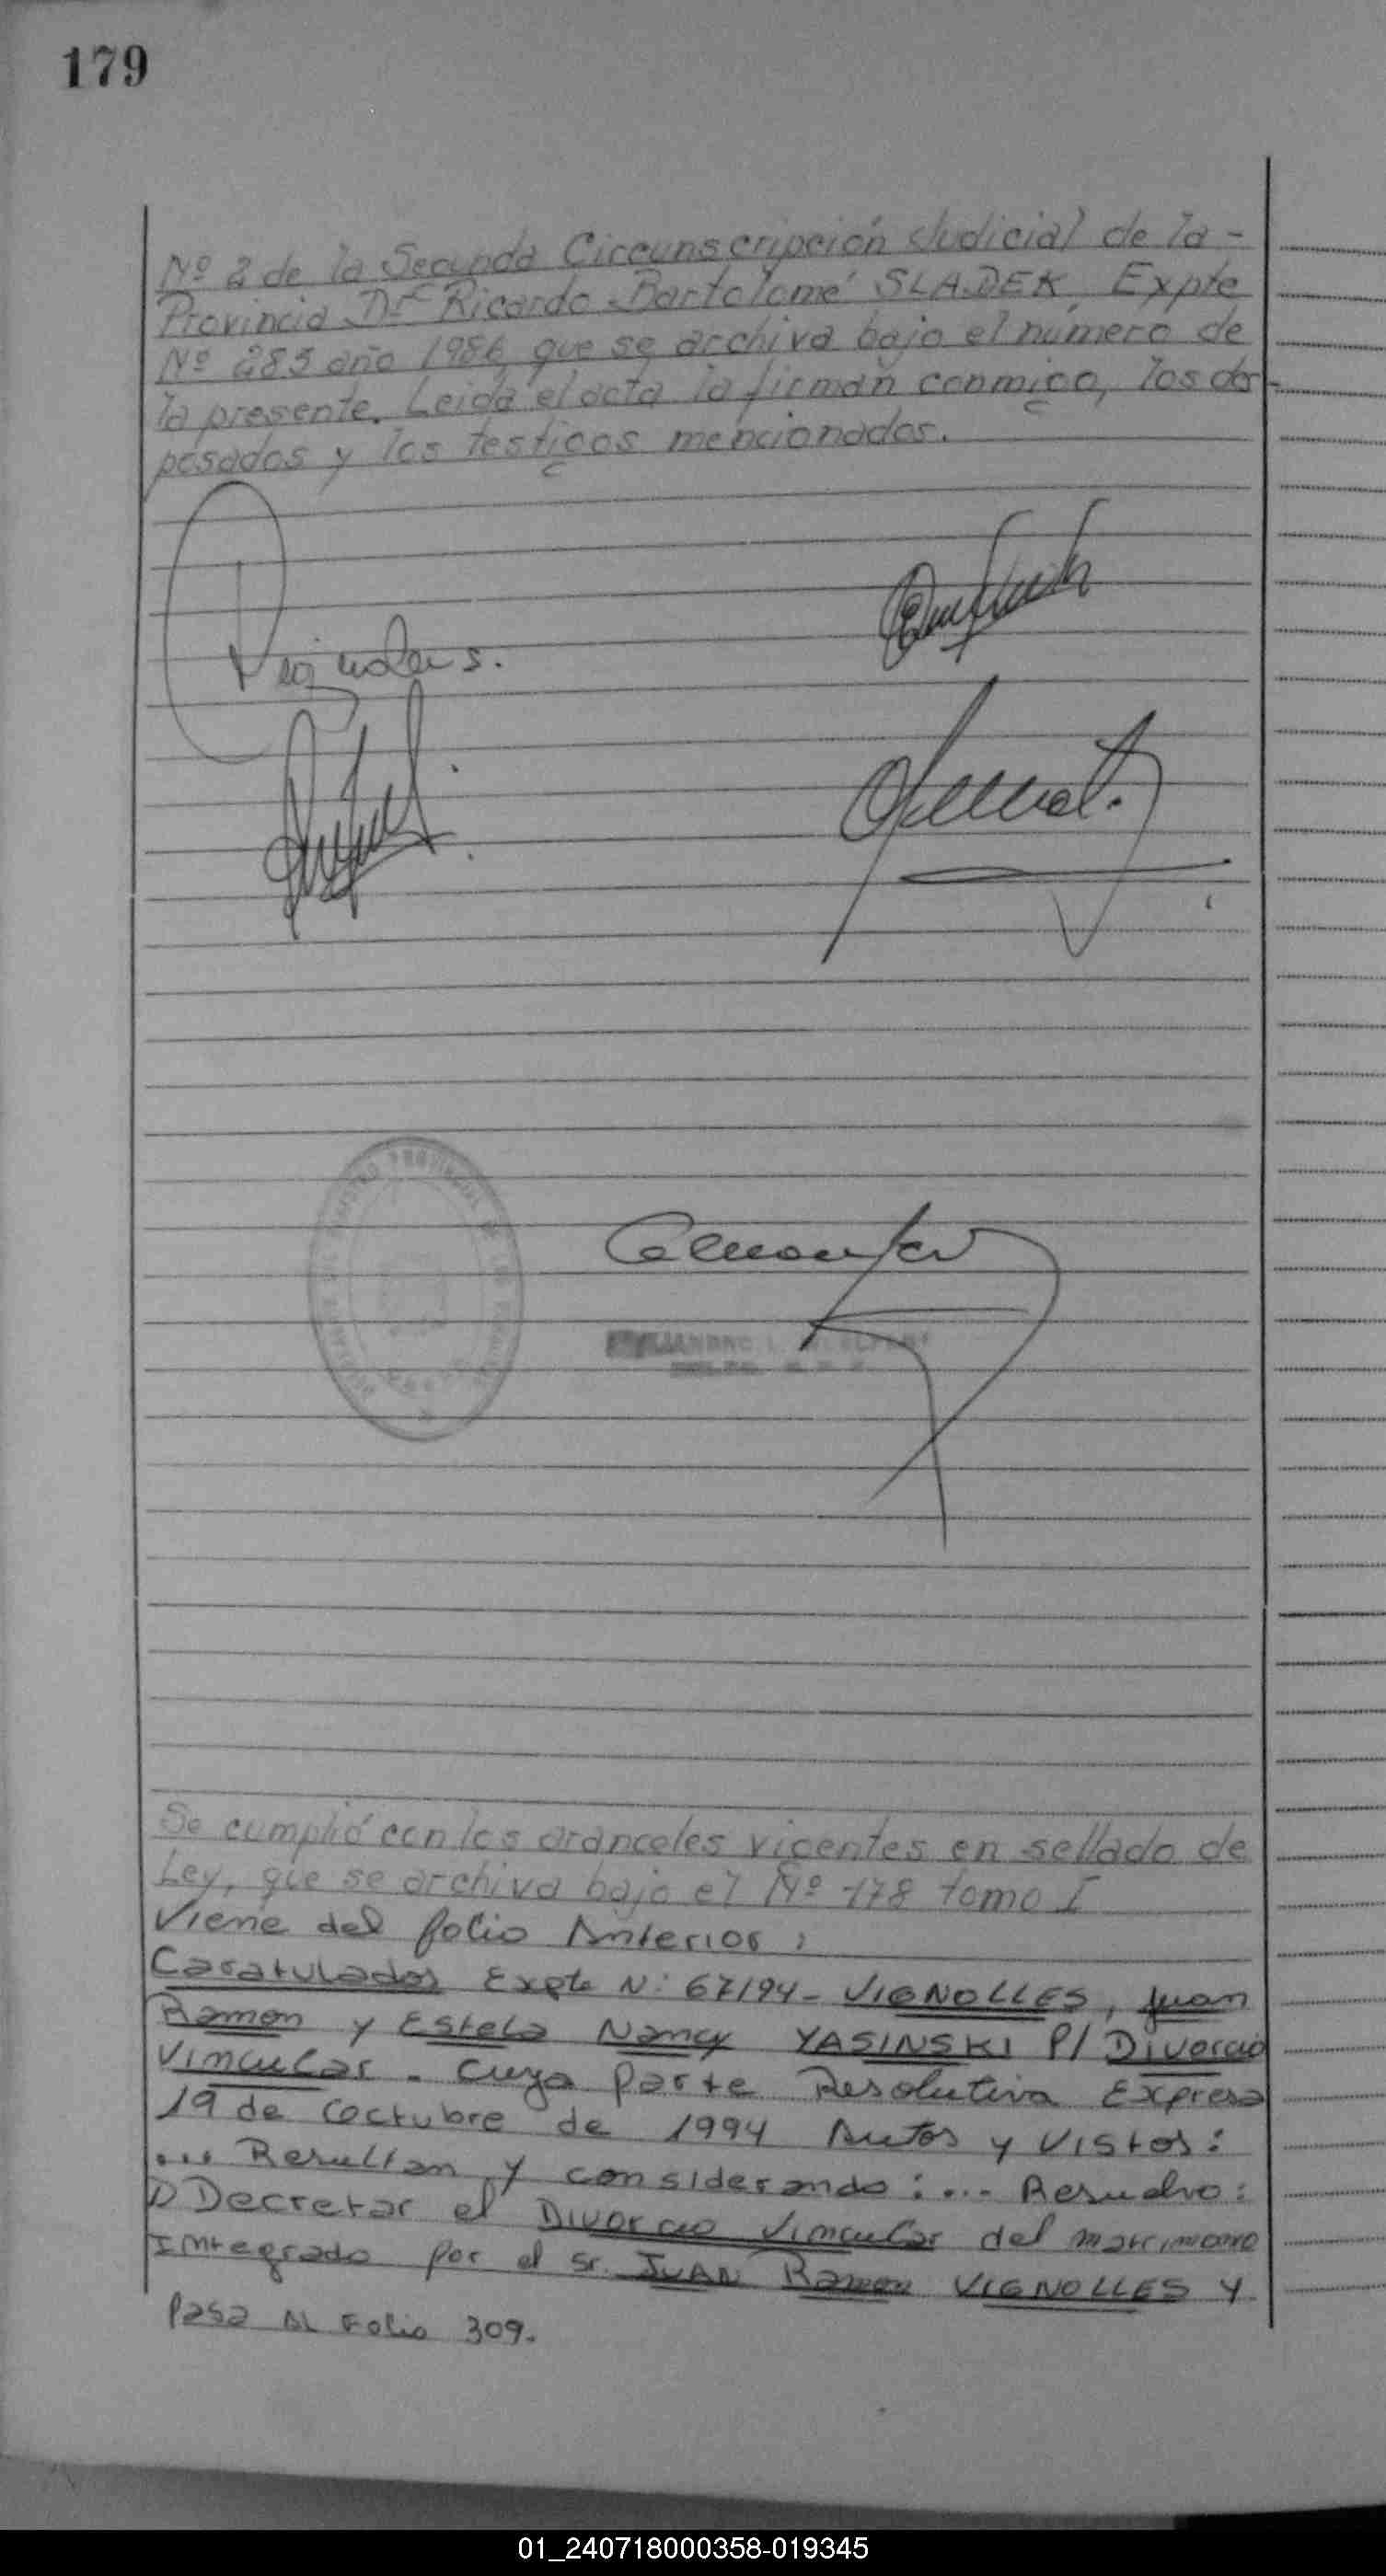 179
Nº 2 de la Segunda Circunscripción Judicial de la -
Provincia Dr Ricardo Bartolomé SLADEK, Expte
Nº 285 año 1986, que se archiva bajo el número de
la presente. Leida el acta la firman conmigo, los des-
posados y los testigos mencionados.
Se cumplió con los aranceles vigentes en sellado de
Ley, que se archiva bajo el Nº 178 tomo I
Viene del folio Anterior:
Caratulados Expte N: 67194- VIGNOLLES, Juan
Ramon y Estela Nancy YASINSKI P/ Divorcio
Vincular. Cuya Parte Resolutiva Expresa
19 de Octubre de 1994 Autos y Vistos:
... Resultan y considerando: ... Resuelvo:
I) Decretar el Divorcio Vincular del matrimonio
Integrado por el Sr. JUAN Ramon VIGNOLLES y
Pasa AL Folio 309.
01_240718000358-019345